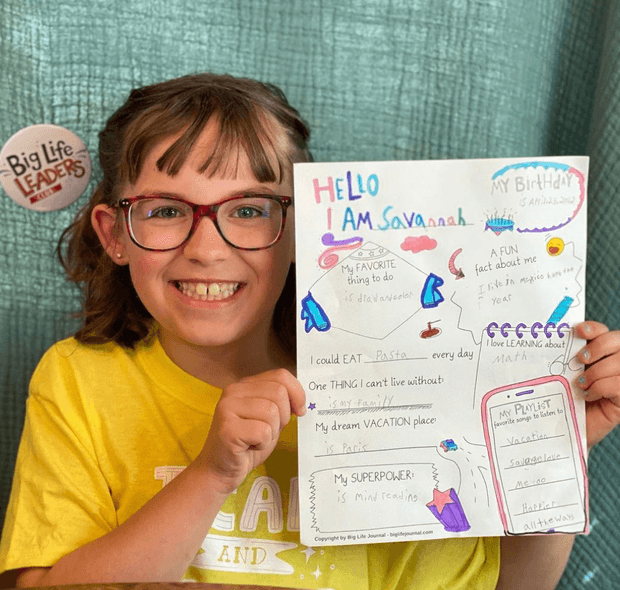 Big Life
LEADERS
CLUB
HELLO
I AM Savannah
MY BirtHdAY
is
My FAVORITE
thing to do
is
A FUN
fact about me
I live in mexico
year
I could EAT Pasta every day
One THING I can't live without:
is my Family
My dream VACATION place:
is Paris
My SUPERPOWER:
is mind reading
I love LEARNING about
Math
MY PLAYLIST
favorite songs to listen to
Vacation
Savage love
me too
Happier
all the way
AND
Copyright by Big Life Journal - biglifejournal.com